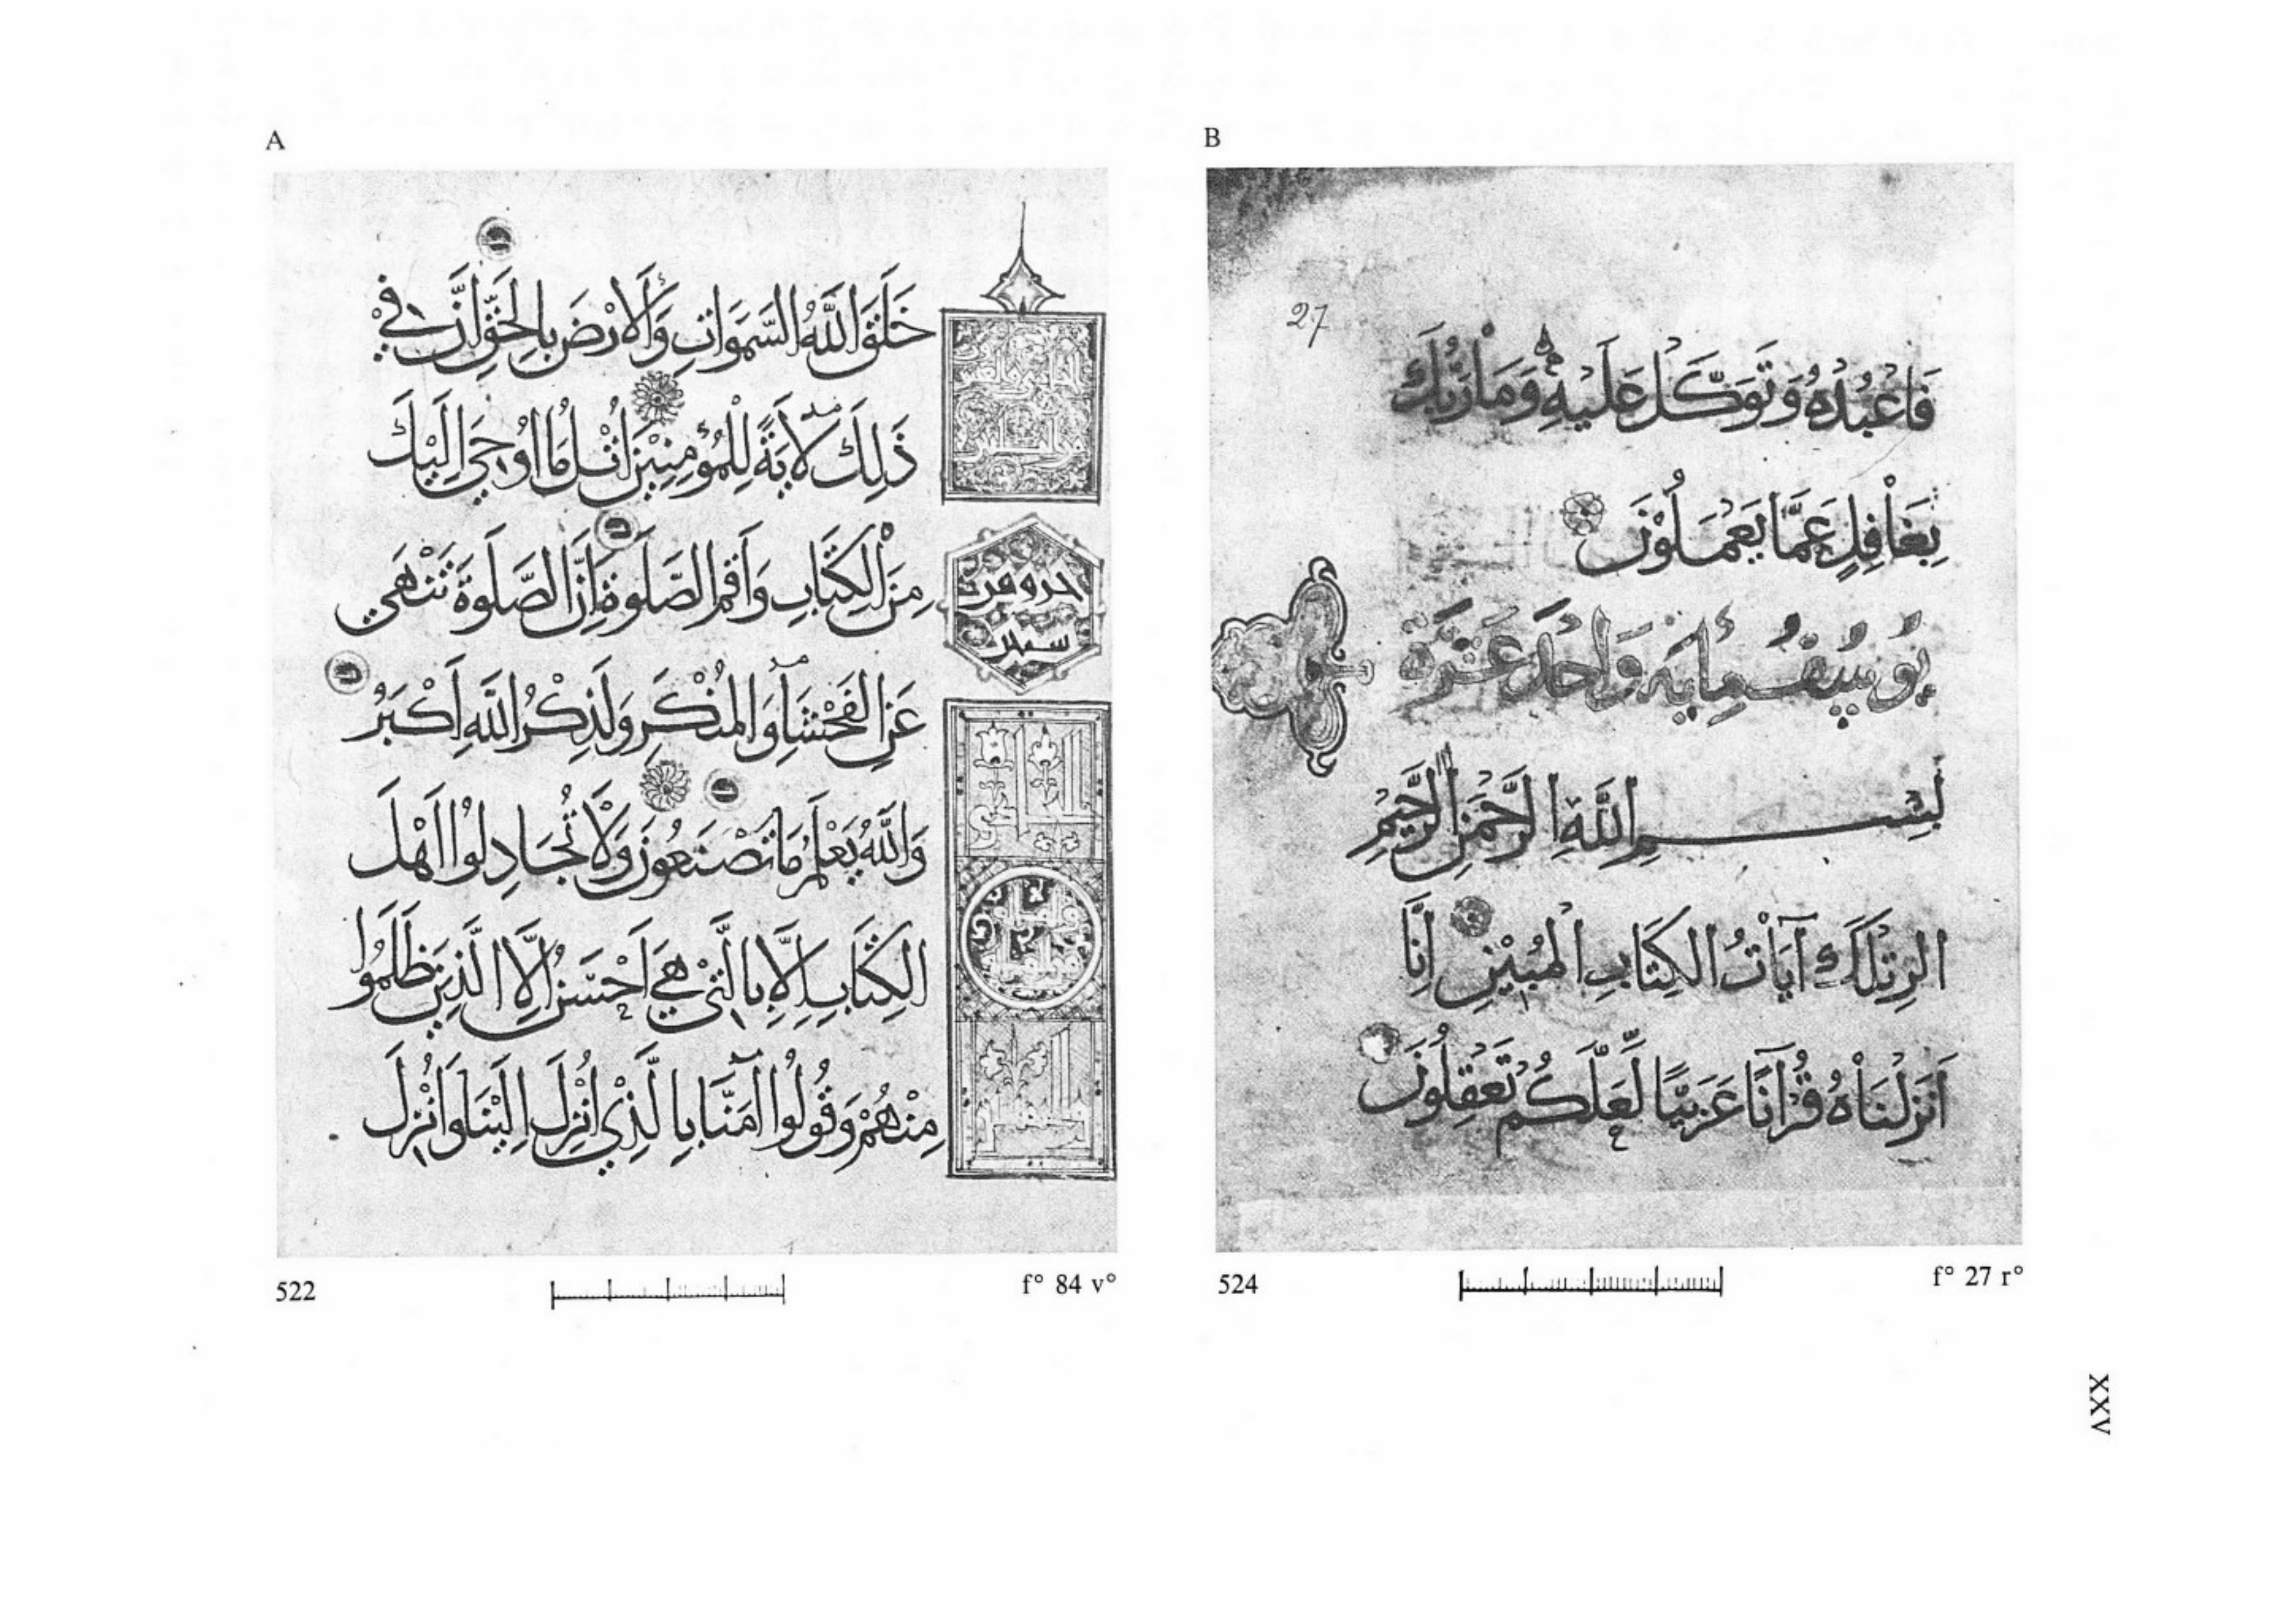 A
خَلَقَ اللَّهُ السَّمَوَاتِ وَالْأَرْضَ بِالْحَقِّ إِنَّ فِي
ذَلِكَ لَآيَةً لِلْمُؤْمِنِينَ اتْلُ مَا أُوحِيَ إِلَيْكَ
مِنَ الْكِتَابِ وَأَقِمِ الصَّلَوةَ إِنَّ الصَّلَوةَ تَنْهَى
عَنِ الْفَحْشَاءِ وَالْمُنْكَرِ وَلَذِكْرُ اللَّهِ أَكْبَرُ
وَاللَّهُ يَعْلَمُ مَا تَصْنَعُونَ وَلَا تُجَادِلُوا أَهْلَ
الْكِتَابِ إِلَّا بِالَّتِي هِيَ أَحْسَنُ إِلَّا الَّذِينَ ظَلَمُوا
مِنْهُمْ وَقُولُوا آمَنَّا بِالَّذِي أُنْزِلَ إِلَيْنَا وَأُنْزِلَ
522
f° 84 v°
B
27
فَاعْبُدْهُ وَتَوَكَّلْ عَلَيْهِ وَمَا رَبُّكَ
بِغَافِلٍ عَمَّا يَعْمَلُونَ
يُوسُفُ مِايَه وَاحْدَعَشَرَة
بِسْمِ اللَّهِ الرَّحْمَنِ الرَّحِيمِ
الر تِلْكَ آيَاتُ الْكِتَابِ الْمُبِينِ إِنَّا
أَنْزَلْنَاهُ قُرْآنًا عَرَبِيًّا لَعَلَّكُمْ تَعْقِلُونَ
524
f° 27 r°
XXV